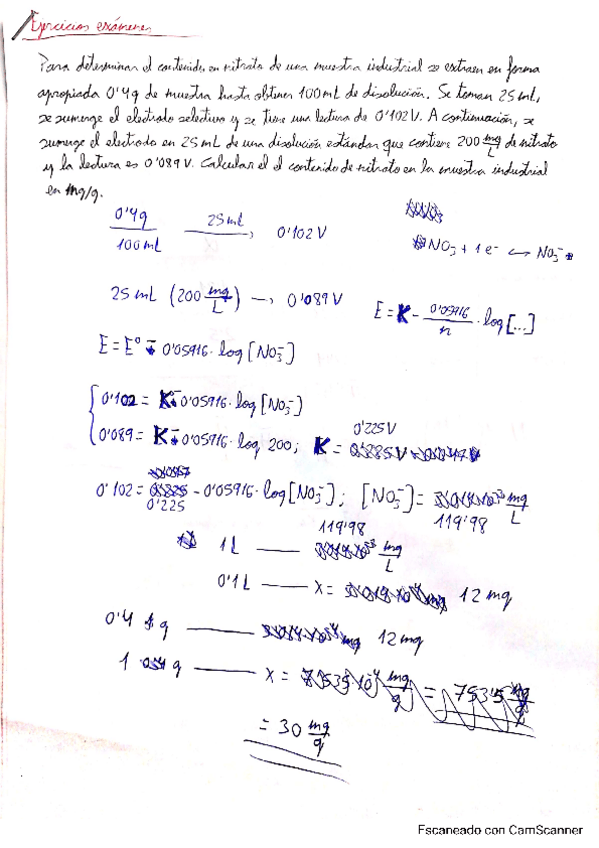 Ejercicios exámenes
Para determinar el contenido en nitrato de una muestra industrial se extraen en forma
apropiada 0'4g de muestra hasta obtener 100mL de disolución. Se toman 25mL,
se sumerge el electrodo selectivo y se tiene una lectura de 0'102V. A continuación, se
sumerge el electrodo en 25mL de una disolución estándar que contiene 200 mg/L de nitrato
y la lectura es 0'089V. Calcular el el contenido de nitrato en la muestra industrial
en mg/g.
0'4g / 100mL — 25mL → 0'102V
NO3 + 1e- ↔ NO3-
25mL (200 mg/L) → 0'089V
E = K - 0'05916/n · log[...]
E = E° - 0'05916 · log[NO3-]
0'102 = K - 0'05916 · log[NO3-]
0'089 = K - 0'05916 · log 200; K = 0'225V
0'102 = 0'225 - 0'05916 · log[NO3-]; [NO3-] = 119'98 mg/L
1L — 119'98 mg/L
0'1L — x = 12mg
0'4 g — 12mg
1 g — x = 7535·10-4 mg/g = 7535 mg/g
= 30 mg/g
Escaneado con CamScanner